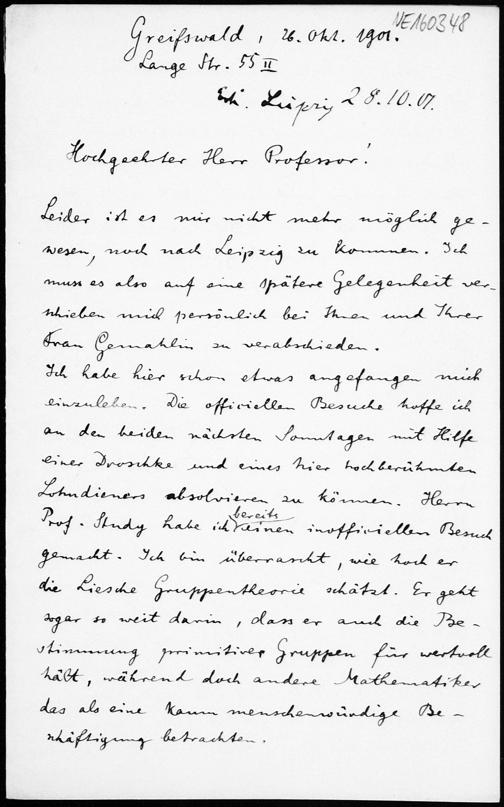 NE160348
Greifswald, 26. Okt. 1901.
Lange Str. 55 II
Leipzig 28.10.01.
Hochgeehrter Herr Professor!
Leider ist es mir nicht mehr möglich ge-
wesen, noch nach Leipzig zu kommen. Ich
muss es also auf eine spätere Gelegenheit ver-
schieben mich persönlich bei Ihnen und Ihrer
Frau Gemahlin zu verabschieden.
Ich habe hier schon etwas angefangen mich
einzuleben. Die officiellen Besuche hoffe ich
an den beiden nächsten Sonntagen mit Hilfe
einer Droschke und eines hier hochberühmten
Lohndieners absolvieren zu können. Herrn
bereits
Prof. Study habe ich einen inofficiellen Besuch
gemacht. Ich bin überrascht, wie hoch er
die Liesche Gruppentheorie schätzt. Er geht
sogar so weit darin, dass er auch die Be-
stimmung primitiver Gruppen für wertvoll
hält, während doch andere Mathematiker
das als eine kaum menschenwürdige Be-
schäftigung betrachten.